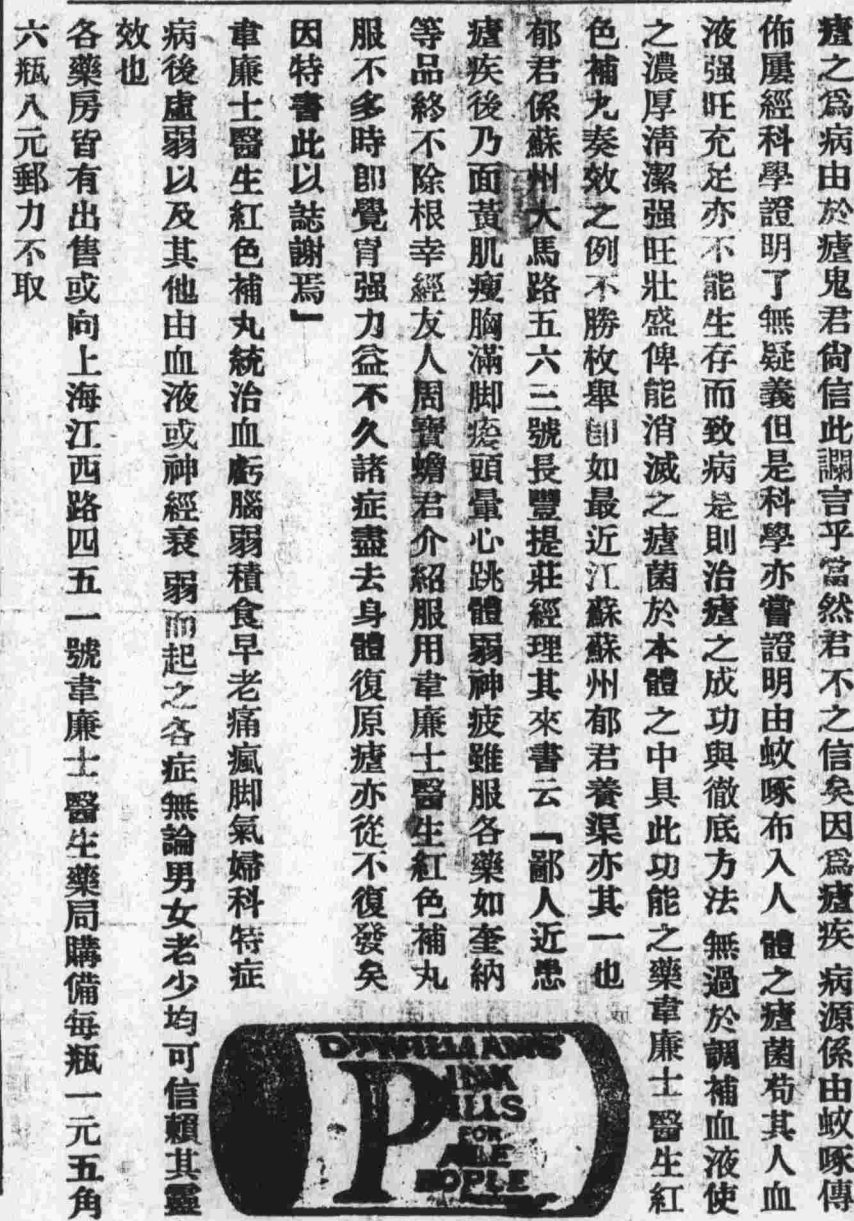 瘧之爲病由於瘧鬼君尙信此讕言乎當然君不之信矣因爲瘧疾病源係由蚊啄傳
佈屢經科學證明了無疑義但是科學亦嘗證明由蚊啄布入人體之瘧菌苟其人血
液强旺充足亦不能生存而致病是則治瘧之成功與徹底方法無過於調補血液使
之濃厚淸潔强旺壯盛俾能消滅之瘧菌於本體之中具此功能之藥韋廉士醫生紅
色補丸奏效之例不勝枚舉卽如最近江蘇蘇州郁君養渠亦其一也
郁君係蘇州大馬路五六三號長豐提莊經理其來書云「鄙人近患
瘧疾後乃面黃肌瘦胸滿脚痠頭暈心跳體弱神疲雖服各藥如奎納
等品終不除根幸經友人周寶蟾君介紹服用韋廉士醫生紅色補丸
服不多時卽覺胃强力益不久諸症盡去身體復原瘧亦從不復發矣
因特書此以誌謝焉」
韋廉士醫生紅色補丸統治血虧腦弱積食早老痛瘋脚氣婦科特症
病後虛弱以及其他由血液或神經衰弱而起之各症無論男女老少均可信賴其靈
效也
各藥房皆有出售或向上海江西路四五一號韋廉士醫生藥局購備每瓶一元五角
六瓶八元郵力不取
DR WILLIAMS'
PINK
PILLS
FOR
PALE
PEOPLE